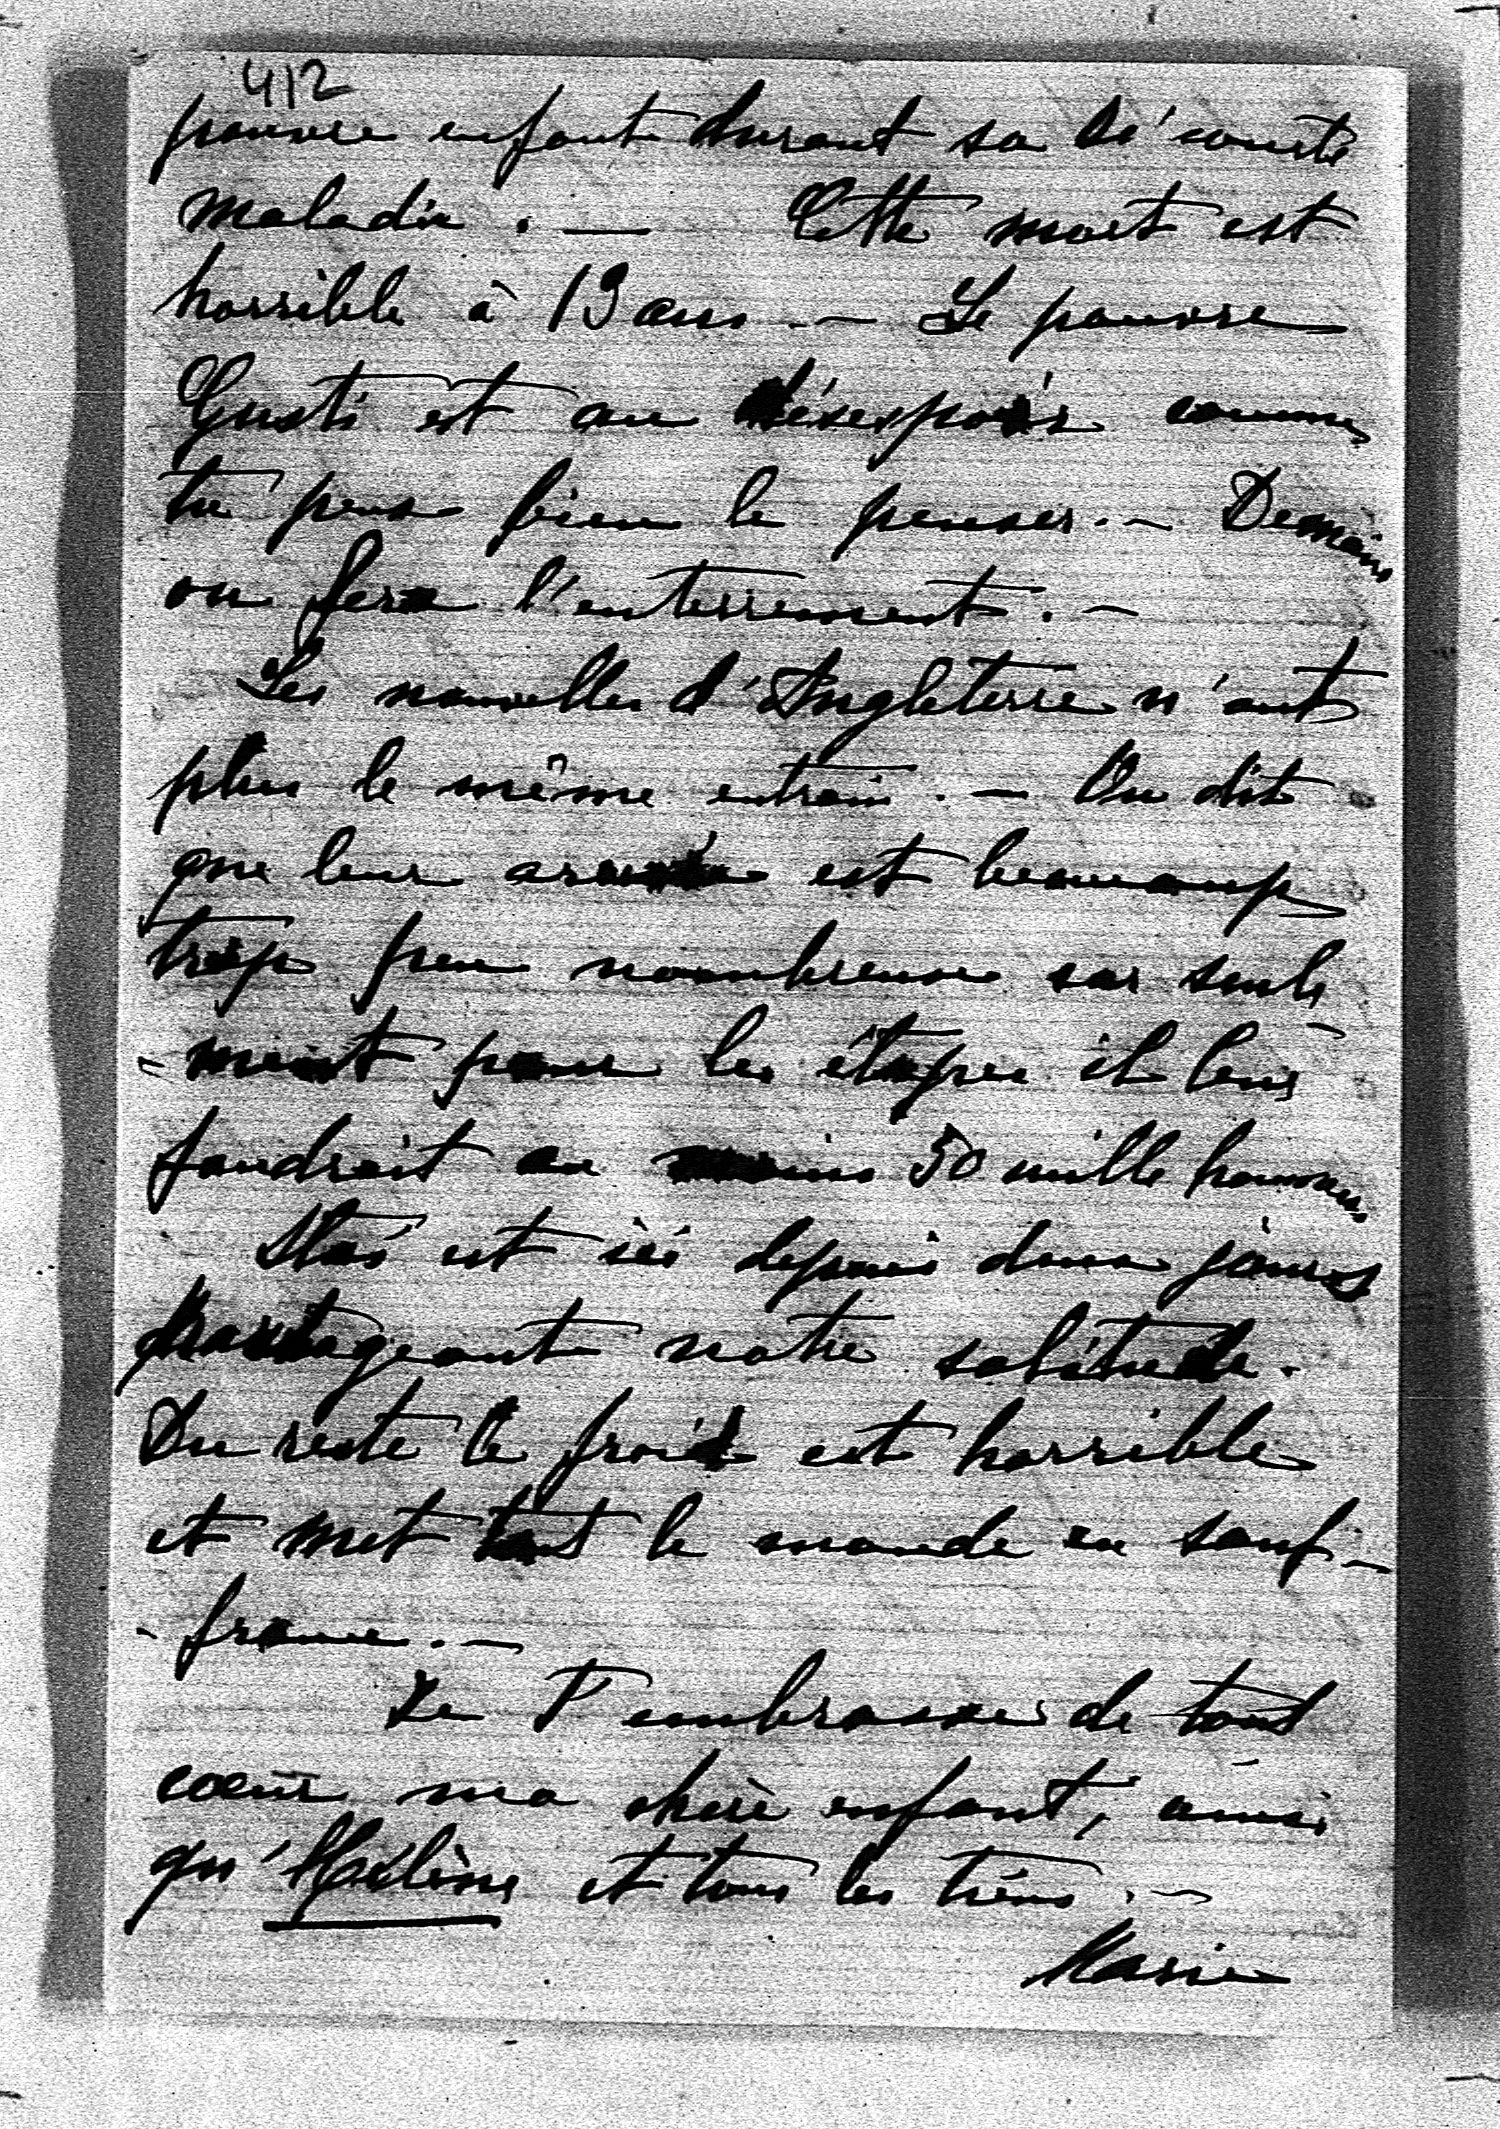 412
pauvre enfant durant sa si courte
maladie. — Cette mort est
horrible à 19 ans. — Le pauvre
Gusti est au désespoir comme
tu peux bien le penser. — Demain
on fera l'enterrement. —
Les nouvelles d'Angleterre n'ont
plus le même entrain. — On dit
que leur armée est beaucoup
trop peu nombreuse car seule
-ment pour les étapes il leur
faudrait au moins 50 mille hommes
Stas est ici depuis deux jours
partageant notre solitude.
Du reste le froid est horrible
et met tout le monde en souf-
-france. —
Je T'embrasse de tout
coeur ma chère enfant, ainsi
qu'Hélène et tous les tiens. —
Marie